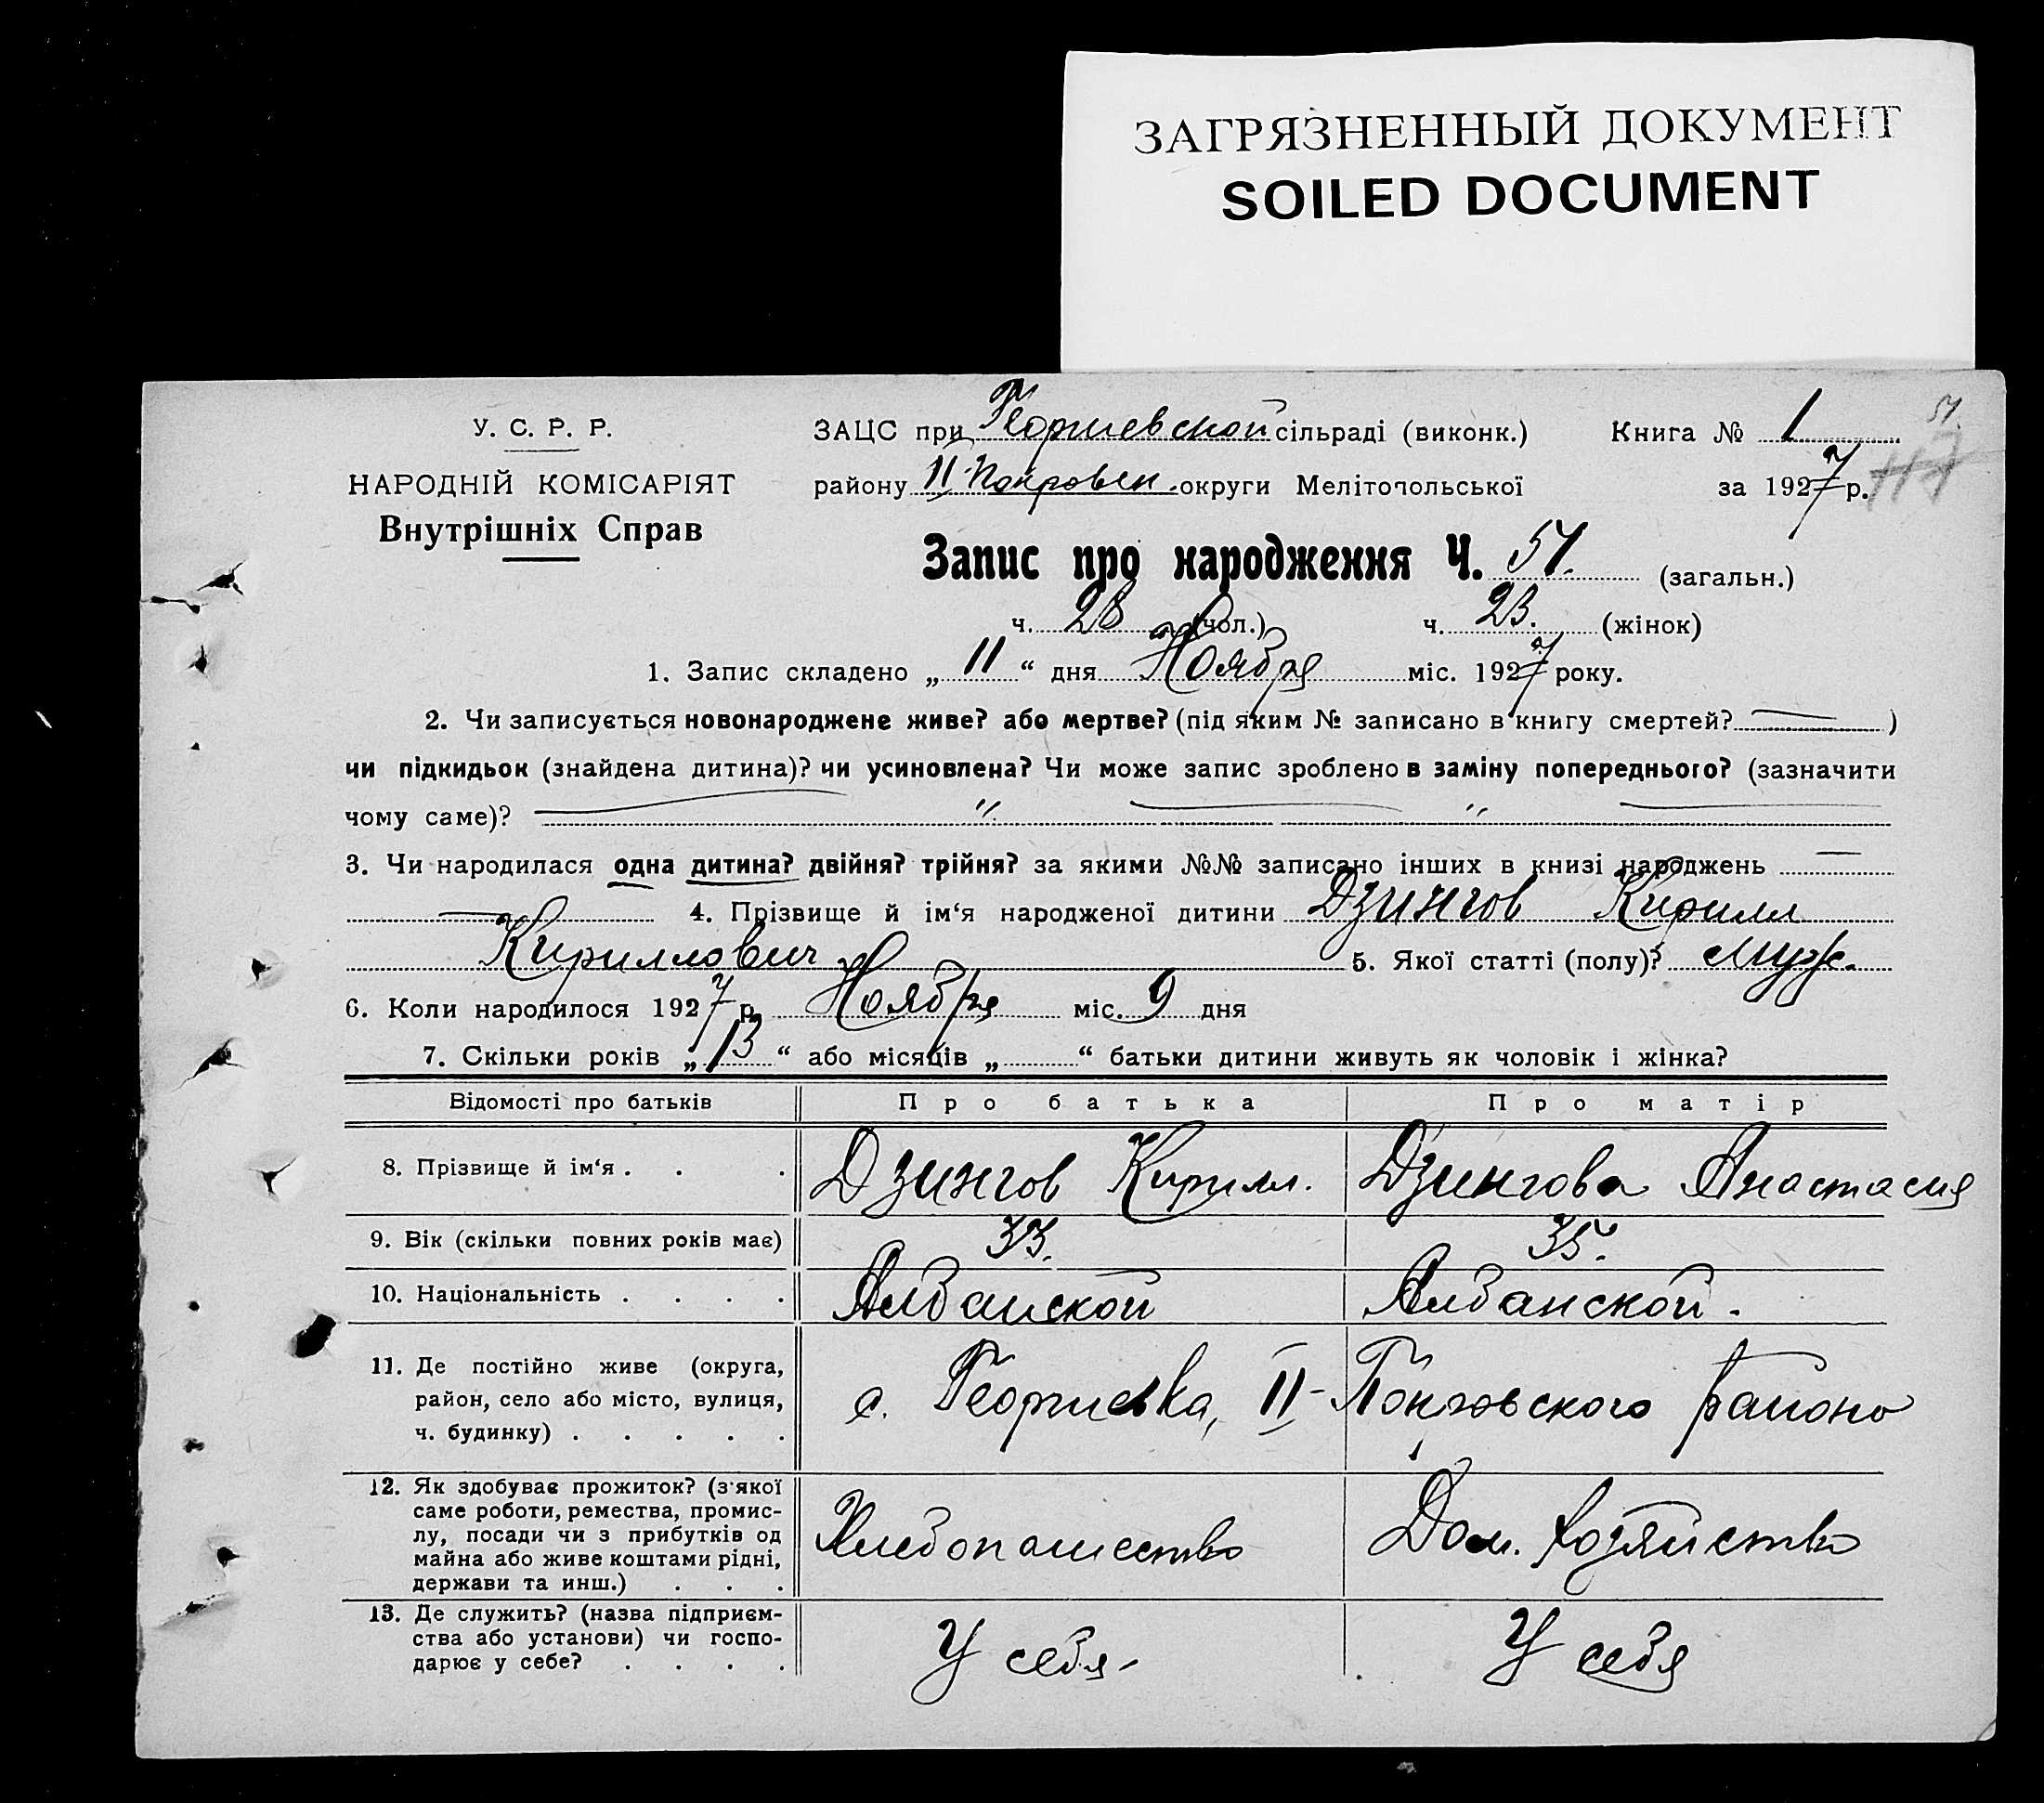 ЗАГРЯЗНЕННЫЙ ДОКУМЕНТ
SOILED DOCUMENT
У. С. Р. Р.
НАРОДНІЙ КОМІСАРІЯТ
Внутрішніх Справ
ЗАЦС при Георгиевской сільраді (виконк.) Книга № 1
51.
району II-Покровск. округи Мелітопольської за 1927 р.
117
Запис про народження Ч. 51. (загальн.)
ч. 28 (чол.) ч. 23. (жінок)
1. Запис складено „ 11 “ дня Ноября міс. 1927 року.
2. Чи записується новонароджене живе? або мертве? (під яким № записано в книгу смертей? — )
чи підкидьок (знайдена дитина)? чи усиновлена? Чи може запис зроблено в заміну попереднього? (зазначити
чому саме)? — " — " —
3. Чи народилася одна дитина? двійня? трійня? за якими №№ записано інших в книзі народжень —
— 4. Прізвище й ім‘я народженої дитини Дзингов Кирилл
Кириллович 5. Якої статті (полу)? муж.
6. Коли народилося 1927 р. Ноября міс. 9 дня
7. Скільки років „ 13 “ або місяців „ “ батьки дитини живуть як чоловік і жінка?
Відомості про батьків Про батька Про матір
8. Прізвище й ім‘я . . . Дзингов Кирилл. Дзингова Анастасия
9. Вік (скільки повних років має) 33. 35.
10. Національність . . . . Албанской Албанской.
11. Де постійно живе (округа,
район, село або місто, вулиця,
ч. будинку) . . . . .
с. Георгиевка, II-Покровского района
12. Як здобуває прожиток? (з‘якої
саме роботи, ремества, промис-
лу, посади чи з прибутків од
майна або живе коштами рідні,
держави та инш.) . . .
Хлебопашество Дом. хозяйство
13. Де служить? (назва підприєм-
ства або установи) чи госпо-
дарює у себе? . . . .
У себя- У себя